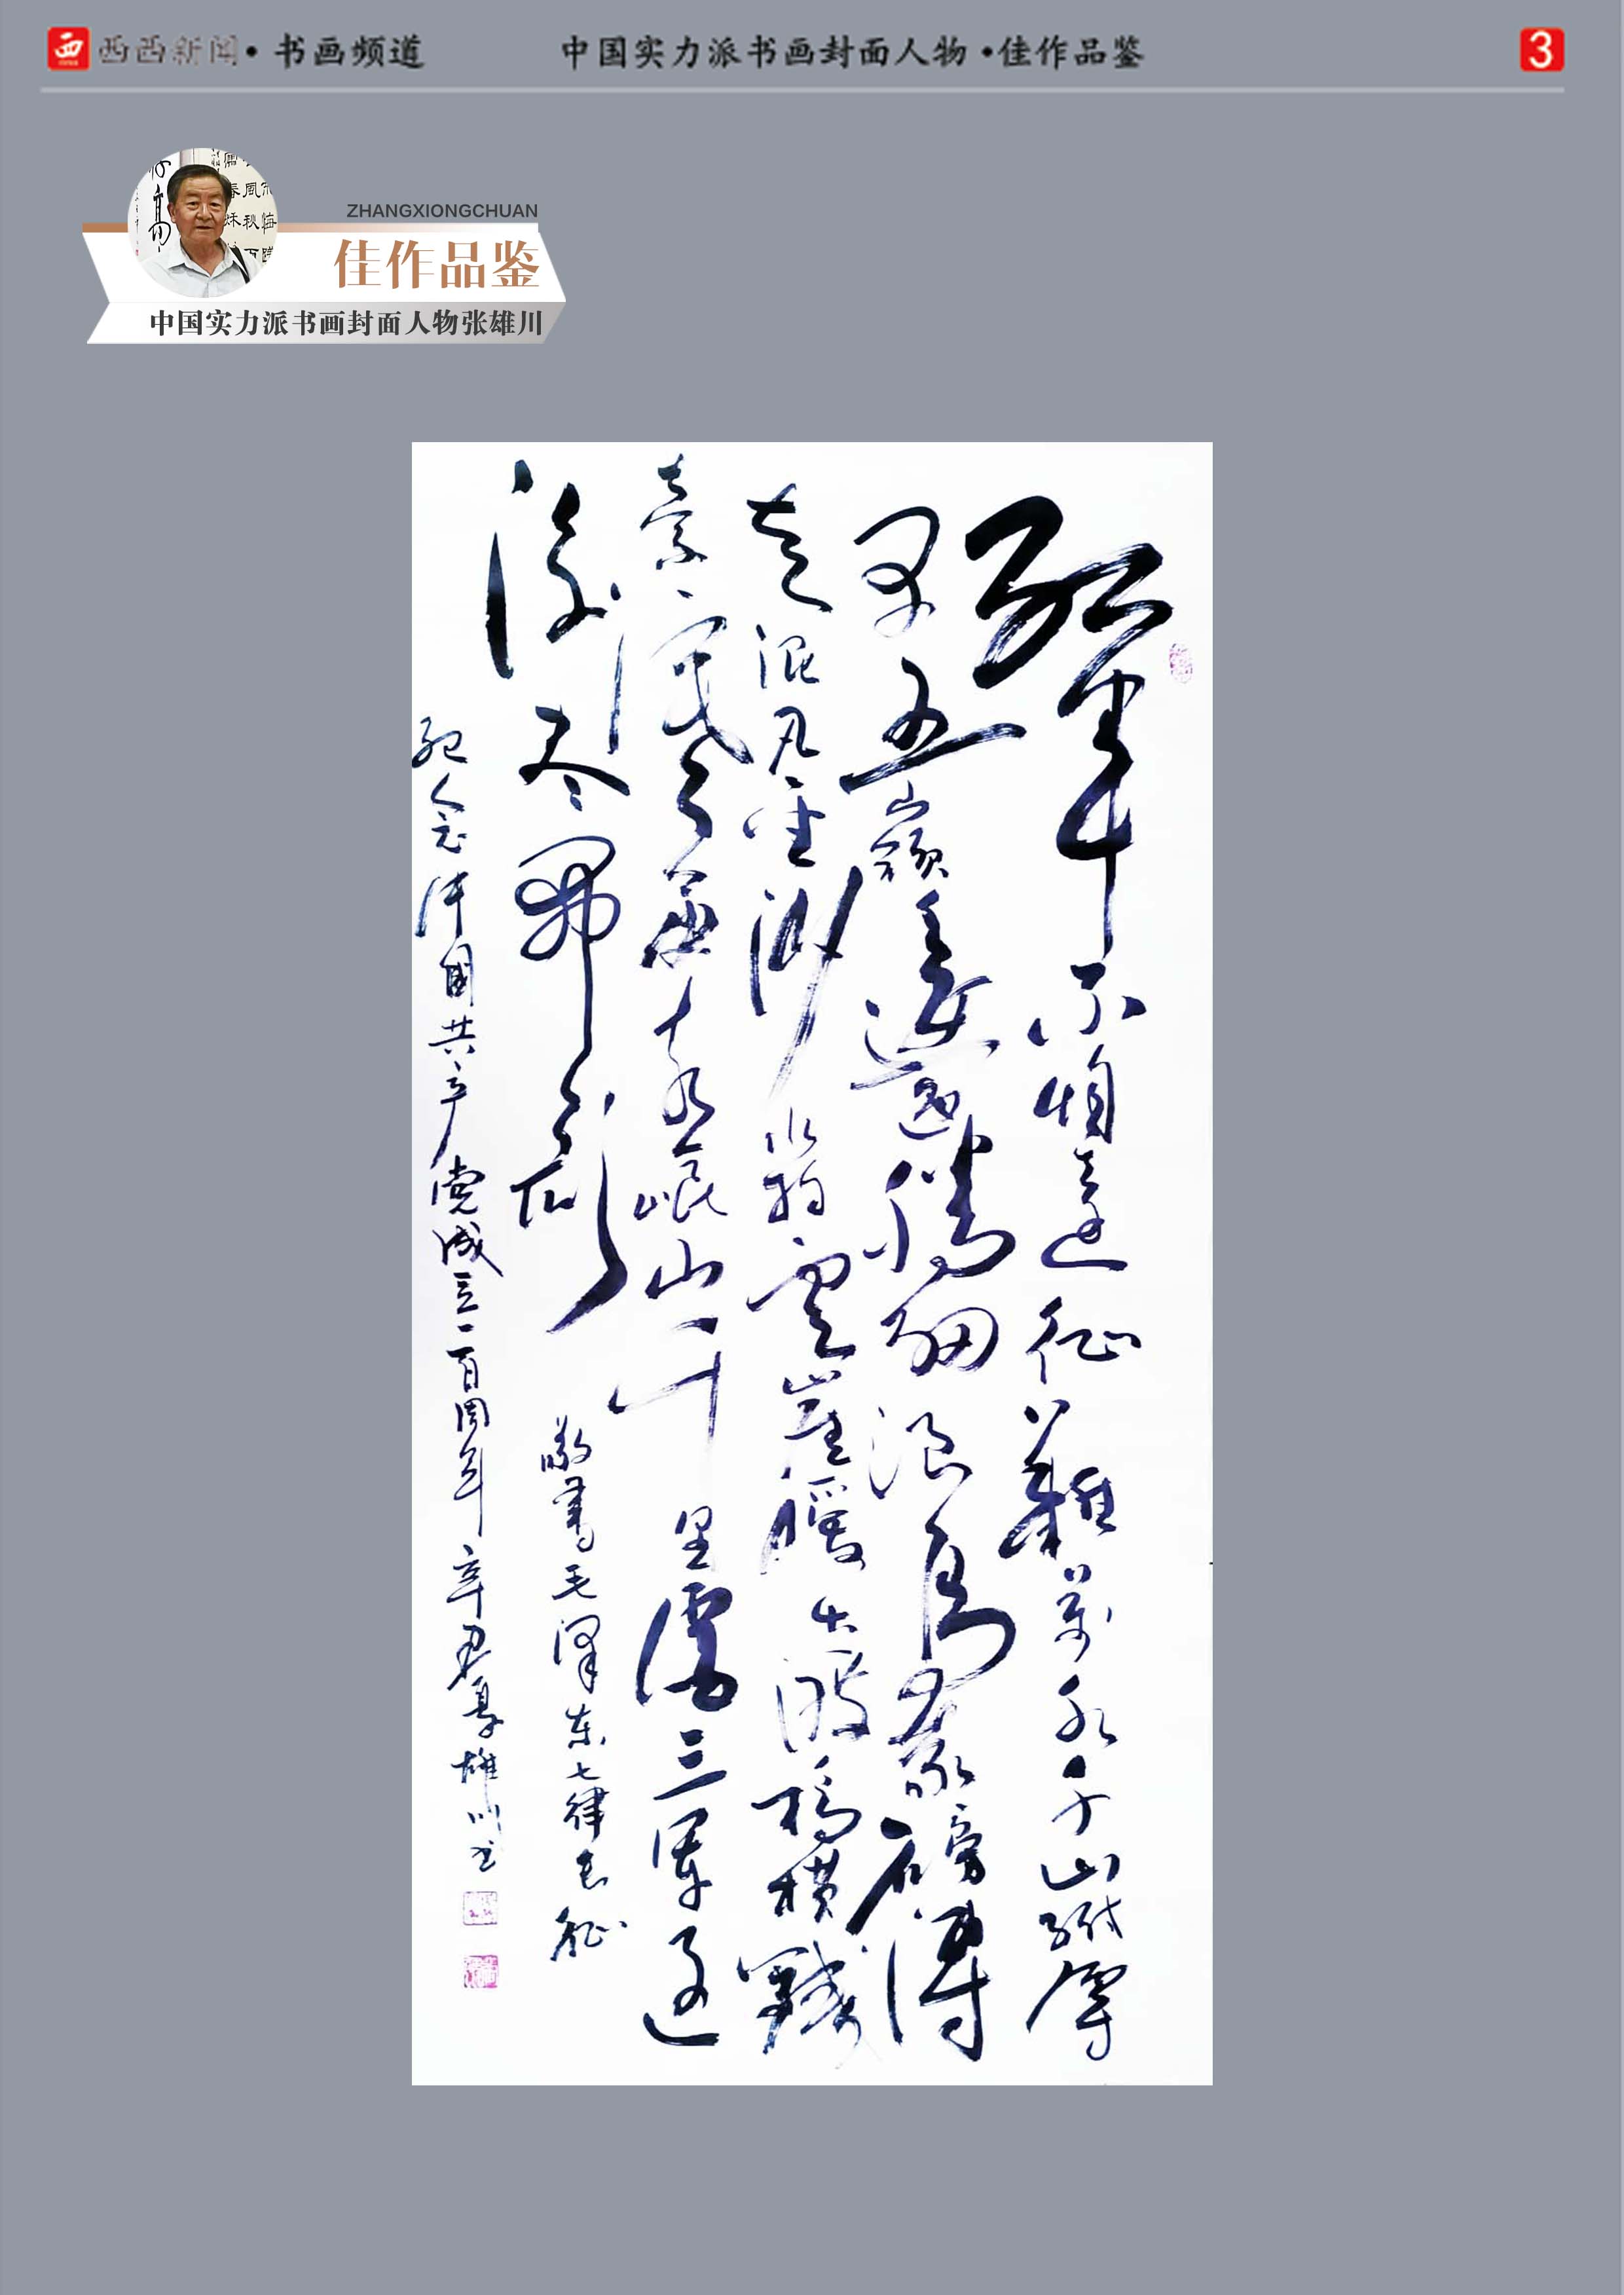 西西新闻•书画频道
中国实力派书画封面人物•佳作品鉴
3
ZHANGXIONGCHUAN
佳作品鉴
中国实力派书画封面人物张雄川
紅軍不怕遠征難萬水千山只等
闲五嶺逶迤腾細浪烏蒙磅礴
走泥丸金沙水拍雲崖暖大渡橋横鐵
索寒更喜岷山千里雪三軍过
後尽開顔
敬書毛泽东七律长征
纪念中國共产党成立一百周年辛丑夏雄川书